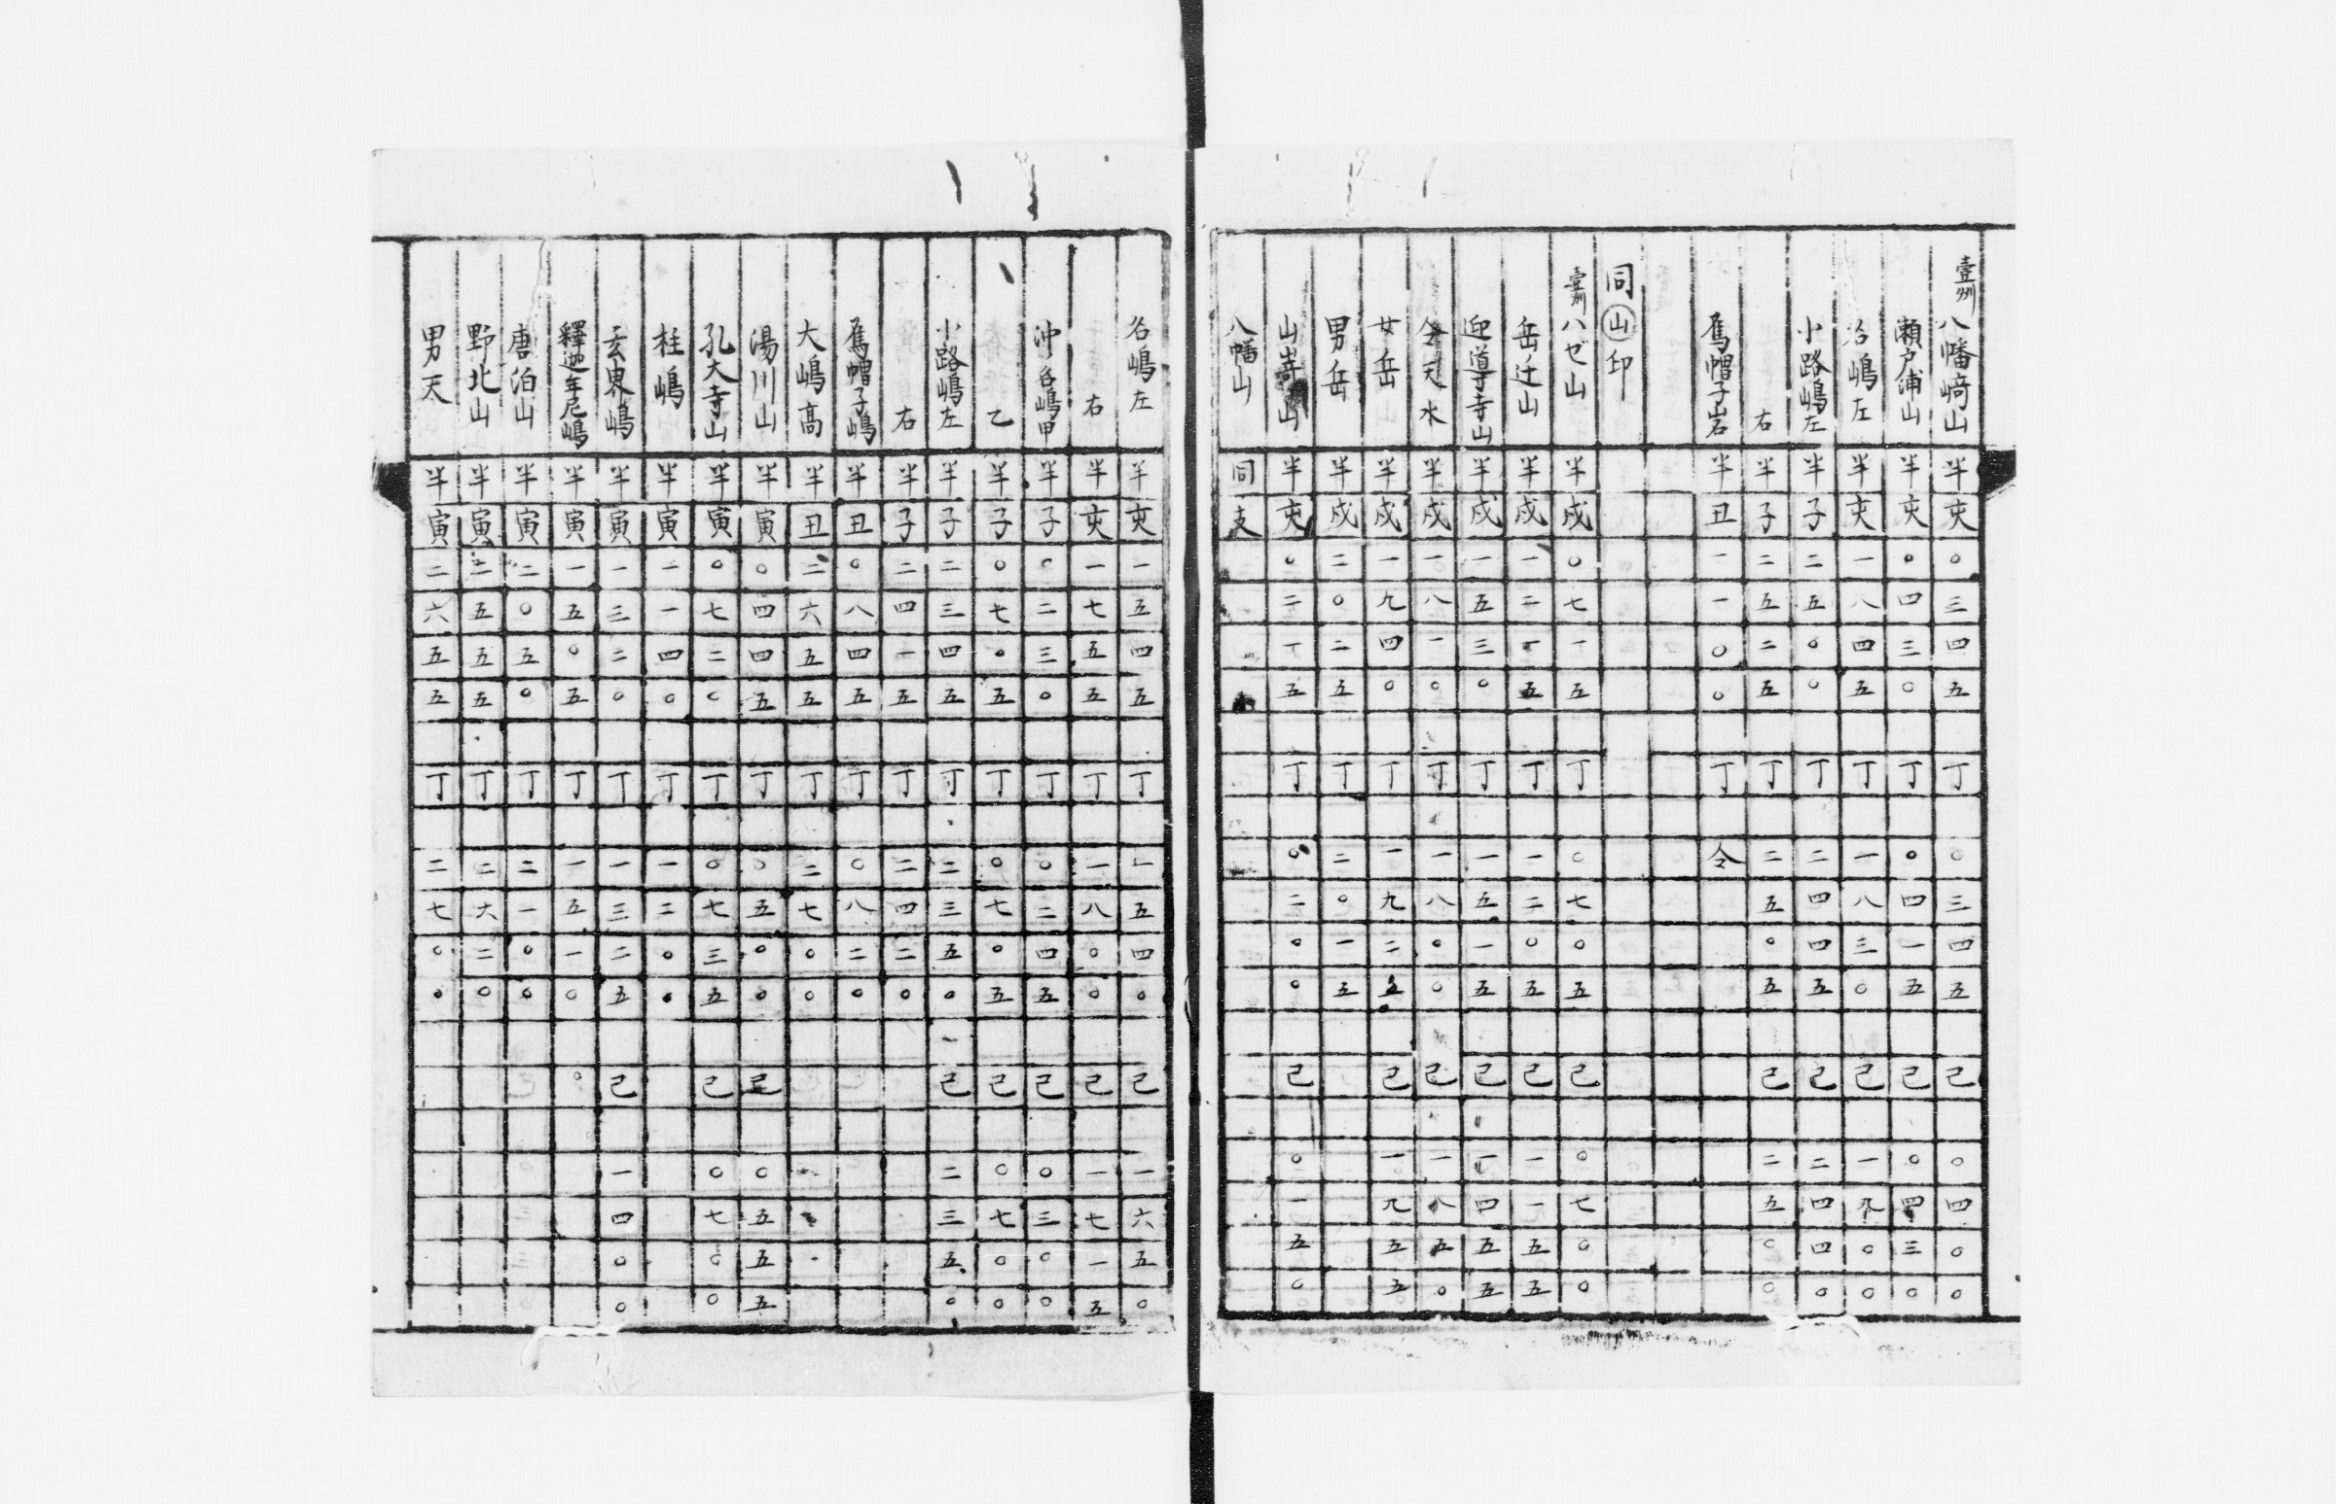 壹州 八幡﨑山 半 亥 〇 三 四 五 丁 〇 三 四 五 己 〇 四 〇 〇
瀬戸浦山 半 亥 〇 四 三 〇 丁 〇 四 一 五 己 〇 四 三 〇
名嶋左 半 亥 一 八 四 五 丁 一 八 三 〇 己 一 八 〇 〇
小路嶋左 半 子 二 五 〇 〇 丁 二 四 四 五 己 二 四 四 〇
右 半 子 二 五 二 五 丁 二 五 〇 五 己 二 五 〇 〇
鳫帽子岩 半 丑 一 一 〇 〇 丁 令
同㊤印
壹州 ハゼ山 半 戌 〇 七 一 五 丁 〇 七 〇 五 己 〇 七 〇 〇
岳辻山 半 戌 一 二 一 五 丁 一 二 〇 五 己 一 一 五 五
迎導寺山 半 戌 一 五 三 〇 丁 一 五 一 五 己 一 四 五 五
令天水 半 戌 一 八 一 〇 丁 一 八 〇 〇 己 一 八 五 〇
女岳 半 戌 一 九 四 〇 丁 一 九 二 五 己 一 九 五 五
男岳 半 戌 二 〇 二 五 丁 二 〇 一 五
山嵜山 半 亥 〇 二 一 五 丁 〇 二 〇 〇 己 〇 一 五 〇
八幡山 同 支
名嶋左 半 亥 一 五 四 五 丁 一 五 四 〇 己 一 六 五 〇
右 半 亥 一 七 五 五 丁 一 八 〇 〇 己 一 七 一 五
沖名嶋甲 半 子 〇 二 三 〇 丁 〇 二 四 五 己 〇 三 〇 〇
乙 半 子 〇 七 〇 五 丁 〇 七 〇 五 己 〇 七 〇 〇
小路嶋左 半 子 二 三 四 五 丁 二 三 五 〇 己 二 三 五 〇
右 半 子 二 四 一 五 丁 二 四 二 〇
鳫帽子嶋 半 丑 〇 八 四 五 丁 〇 八 二 〇
大嶋高 半 丑 二 六 五 五 丁 二 七 〇 〇
湯川山 半 寅 〇 四 四 五 丁 〇 五 〇 〇 己 〇 五 五 五
孔大寺山 半 寅 〇 七 二 〇 丁 〇 七 三 五 己 〇 七 〇 〇
柱嶋 半 寅 一 一 四 〇 丁 一 二 〇 〇
玄界嶋 半 寅 一 三 二 〇 丁 一 三 二 五 己 一 四 〇 〇
釋迦牟尼嶋 半 寅 一 五 〇 五 丁 一 五 一 〇
唐泊山 半 寅 二 〇 五 〇 丁 二 一 〇 〇
野北山 半 寅 二 五 五 五 丁 二 六 二 〇
男天 半 寅 二 六 五 五 丁 二 七 〇 〇